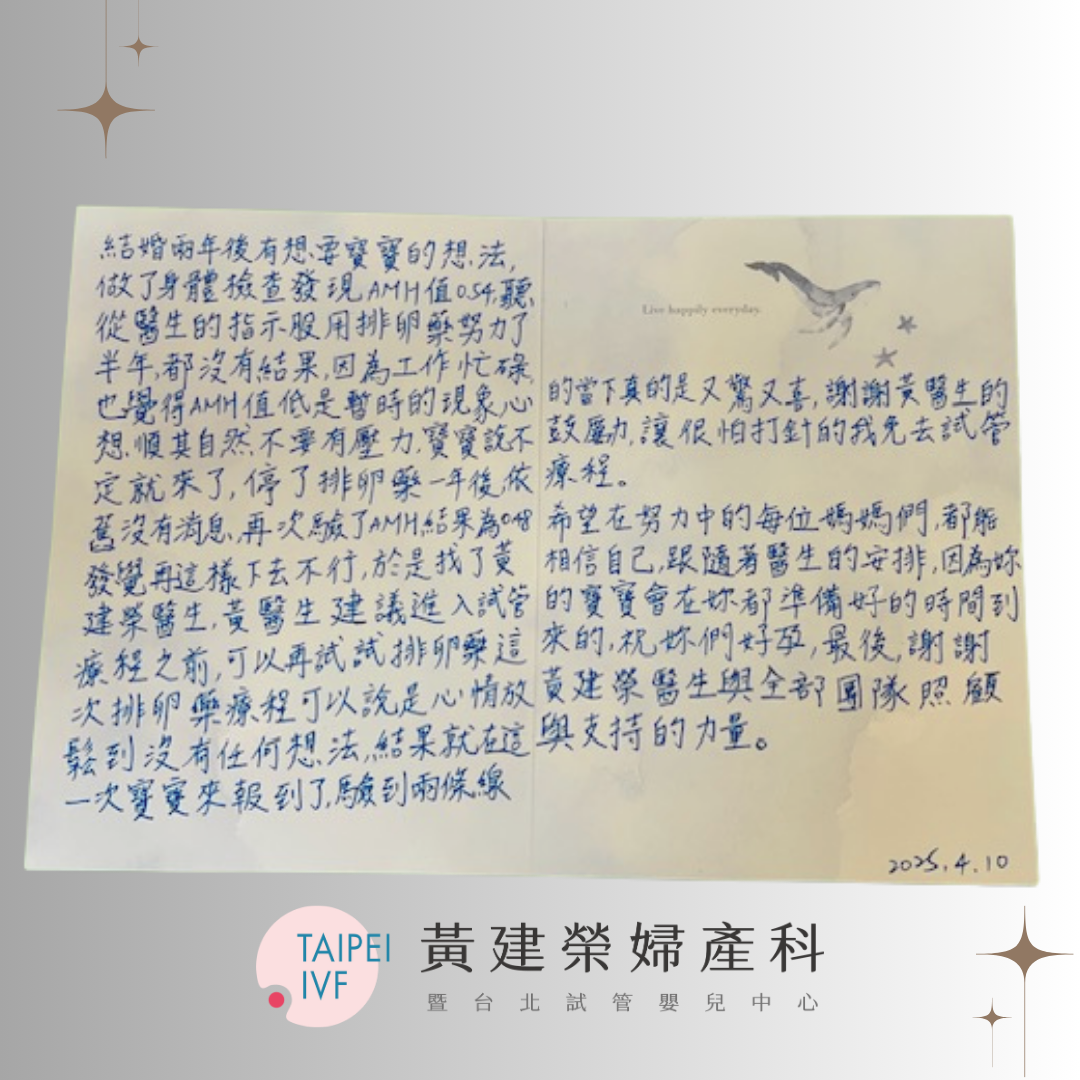 結婚兩年後有想要寶寶的想法,
做了身體檢查發現AMH值0.54,聽
從醫生的指示服用排卵藥努力了
半年,都沒有結果,因為工作忙碌
也覺得AMH值低是暫時的現象,心
想順其自然不要有壓力,寶寶說不
定就來了,停了排卵藥一年後,依
舊沒有消息,再次驗了AMH,結果為0.48
發覺再這樣下去不行,於是找了黃
建榮醫生,黃醫生建議進入試管
療程之前,可以再試試排卵藥這
次排卵藥療程可以說是心情放
鬆到沒有任何想法,結果就在這
一次寶寶來報到了,驗到兩條線
Live happily everyday.
的當下真的是又驚又喜,謝謝黃醫生的
鼓勵,讓很怕打針的我免去試管
療程。
希望在努力中的每位媽媽們,都能
相信自己,跟隨著醫生的安排,因為妳
的寶寶會在妳都準備好的時間到
來的,祝妳們好孕,最後,謝謝
黃建榮醫生與全部團隊照顧
與支持的力量。
2025.4.10
TAIPEI
IVF
黃建榮婦產科
暨台北試管嬰兒中心